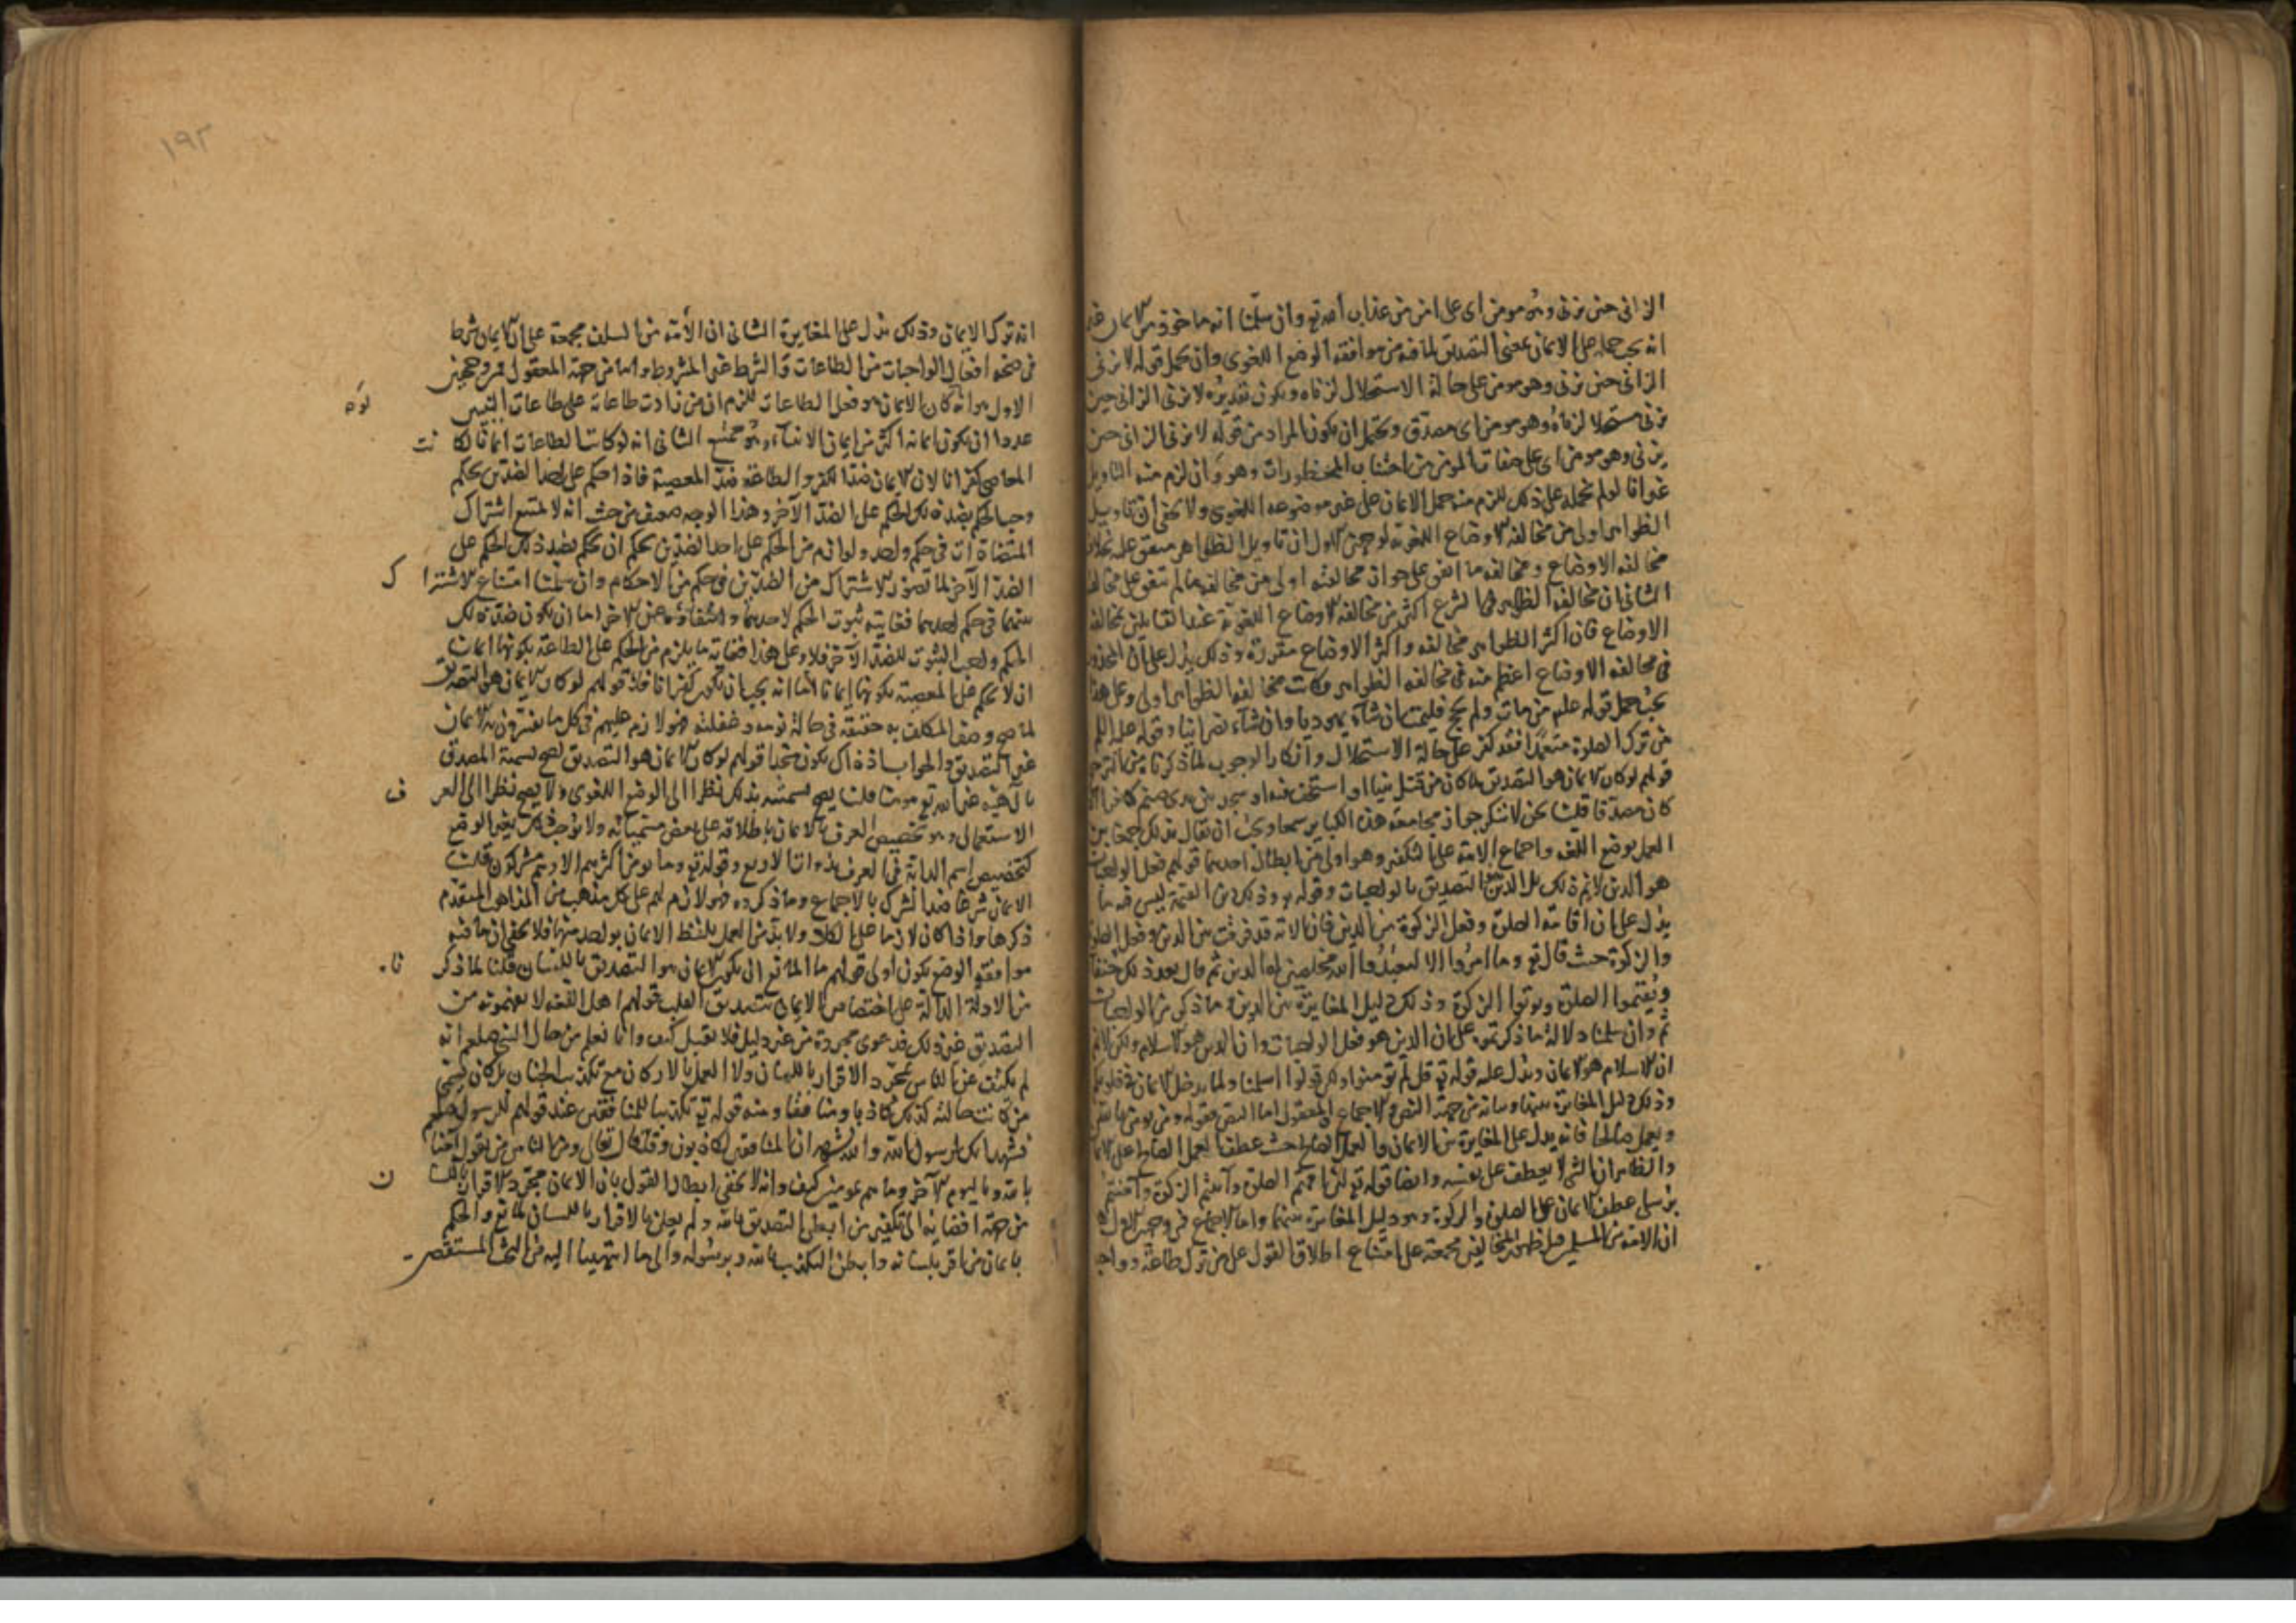 الزاني حين يزني وهو مومن اى على امن من عذاب الله تع وان سلمنا انه ماخوذ من الايمان غير
انه يجب حمله على الايمان بمعنى التصديق لما فيه من موافقة الوضع اللغوى وان يحمل قوله لا يزنى
الزانى حين يزنى وهو مومن على حالة الاستحلال لزناه ويكون تقديره لا يزنى الزانى حين
يزنى مستحلا لزناه وهو مومن اى مصدق ويحتمل ان يكون المراد من قوله لا يزنى الزانى حين
يزنى وهو مومن اى على صفات المومن من اجتناب المحظورات وهو وان لزم منه التاويل
غير انا لو لم نحمله على ذلك للزم منه حمل الايمان على غير موضوعه اللغوى ولا يخفى ان تاويل
الظواهر اولى من مخالفة الاوضاع اللغوية لوجهين الاول ان تاويل الظواهر متفق عليه بخلاف
مخالفة الاوضاع ومخالفة ما اتفق على جواز مخالفته اولى من مخالفة ما لم يتفق على مخالفته
الثانى ان مخالفة الظواهر فى الشرع اكثر من مخالفة الاوضاع اللغوية عند القايلين بمخالفة
الاوضاع فان اكثر الظواهر مخالفة واكثر الاوضاع مقررة وذلك يدل على ان المحذور
فى مخالفة الاوضاع اعظم منه فى مخالفة الظواهر وكانت مخالفة الظواهر اولى وعلى هذا
يجب حمل قوله علم من مات ولم يحج فليمت ان شاء يهوديا وان شاء نصرانيا وقوله عليه السلم
من ترك الصلوة متعمدا فقد كفر على حالة الاستحلال وانكار الوجوب لما ذكرنا من الترجيح
قولهم لو كان الايمان هو التصديق لما كان من قتل نبيا او استخف به او سجد بين يدى صنم كافرا اذا
كان مصدقا قلنا نحن لا ننكر جواز مجامعة هذه الكباير سمعا ويجب ان يقال بذلك جمعا بين
العمل بوضع اللغة واجماع الامة على التكفير وهو اولى من ابطال احدهما قولهم فعل الواجبات
هو الدين لا نم ذلك بل الدين التصديق بالواجبات وقوله وذلك دين القيمة ليس فيه ما
يدل على ان اقامة الصلوة وفعل الزكوة من الدين فان الاية قد فرقت بين الدين وفعل الصلوة
والزكوة حيث قال تع وما امروا الا ليعبدوا الله مخلصين له الدين ثم قال بعد ذلك حنفاء
ويقيموا الصلوة ويوتوا الزكوة وذلك دليل المغايرة بين الدين وما ذكر من الواجبات
ثم وان سلمنا دلالة ما ذكرتموه على ان الدين هو فعل الواجبات وان الدين هو الاسلام ولكن لا نم
ان الاسلام هو الايمان ويدل عليه قوله تع قل لم تومنوا ولكن قولوا اسلمنا ولما يدخل الايمان فى قلوبكم
وذلك دليل المغايرة بينهما وبيانه من جهة النص والاجماع والمعقول اما النص فقوله ومن يومن بالله
ويعمل صالحا فانه يدل على المغايرة بين الايمان والعمل الصالح حيث عطف العمل الصالح على الايمان
والظاهر ان الشى لا يعطف على نفسه وايضا قوله تع لئن اقمتم الصلوة وآتيتم الزكوة وآمنتم
برسلى عطف الايمان على الصلوة والزكوة وهو دليل المغايرة بينهما واما الاجماع فمن وجهين الاول
ان الامة من المسلمين قبل ظهور المخالفين مجمعة على امتناع اطلاق القول على من ترك طاعة وواجبا
١٩٢
انه ترك الايمان وذلك يدل على المغايرة الثانى ان الأمة من السلف مجمعة على ان الايمان شرط
فى صحة افعال الواجبات من الطاعات والشرط غير المشروط واما من جهة المعقول فمن وجهين
الاول هو انه لو كان الايمان هو فعل الطاعات للزم ان من زادت طاعاته على طاعات النبيين
عددا ان يكون ايمانه اكثر من ايمان الانبياء وهو ممتنع الثانى انه لو كانت الطاعات ايمانا لكانت
المعاصى كفرانا لان الايمان ضد الكفر والطاعة ضد المعصية فاذا حكم على احد الضدين بحكم
وجب الحكم بضده ذلك الحكم على الضد الآخر وهذا الوجه ضعيف من حيث انه لا يمتنع اشتراك
المتضادات فى حكم واحد ولو لزم من الحكم على احد الضدين بحكم ان يحكم بضد ذلك الحكم على
الضد الآخر لما تصور الاشتراك من الضدين فى حكم من الاحكام وان سلمنا امتناع الاشتراك
بينهما فى حكم احدهما فغايته ثبوت الحكم لاحدهما وانتفاؤه عن الاخر اما ان يكون ضد ذلك
الحكم واجب الثبوت للضد الآخر فلا وعلى هذا فغاية ما يلزم من الحكم على الطاعة بكونها ايمانا
ان لا يحكم على المعصية بكونها ايمانا اما انه يجب ان يكون كفرانا فلا قولهم لو كان الايمان هو التصديق
لما صح وصف المكلف به حقيقة فى حالة نومه وغفلته هو لازم عليهم فى كل ما يفسرون به الايمان
غير التصديق والجواب اذ ذاك يكون متحدا قولهم لو كان الايمان هو التصديق لصح تسمية المصدق
بالهية غير الله تع مومنا قلنا يصح تسميته بذلك نظرا الى الوضع اللغوى ولا يصح نظرا الى العرف
الاستعمالى وهو تخصيص العرف الايمان باطلاقه على بعض مسمياته ولا يوجب ذلك تغيير الوضع
كتخصيص اسم الدابة فى العرف بذوات الاربع وقوله تع وما يومن اكثرهم بالله الا وهم مشركون قلنا
الايمان شرعا ضد الشرك بالاجماع وما ذكروه فهو لازم لهم على كل مذهب من المذاهب المتقدم
ذكرها واذا كان لازما على الكل ولا بد من العمل بلفظ الايمان بواحد منها فلا يخفى ان ما فيه
موافقة الوضع يكون اولى قولهم ما المانع ان يكون الايمان هو التصديق باللسان قلنا لما ذكرنا
من الادلة الدالة على اختصاص الايمان بتصديق القلب قولهم اهل اللغة لا يفهمون من
التصديق غير ذلك فدعوى مجردة من غير دليل فلا تقبل كيف وانا نعلم من حال النبى صلعم انه
لم يكتف من الناس بمجرد الاقرار باللسان ولا العمل بالاركان مع تكذيب الجنان بل كان يسمى
من كانت حاله كذلك كاذبا ومنافقا ومنه قوله تع تكذيبا للمنافقين عند قولهم للرسول صلعم
نشهد انك لرسول الله والله يشهد ان المنافقين لكاذبون وقال تعالى ومن الناس من يقول آمنا
بالله وباليوم الآخر وما هم بمومنين كيف وانه لا يخفى ابطال القول بان الايمان مجرد الاقرار باللسان
من جهة افضايه الى تكفير من ابطن التصديق بالله ولم يعلن بالاقرار باللسان لمانع والحكم
بايمان من اقر بلسانه وابطن التكذيب بالله وبرسوله والى ما انتهينا اليه من البحث المستقصى